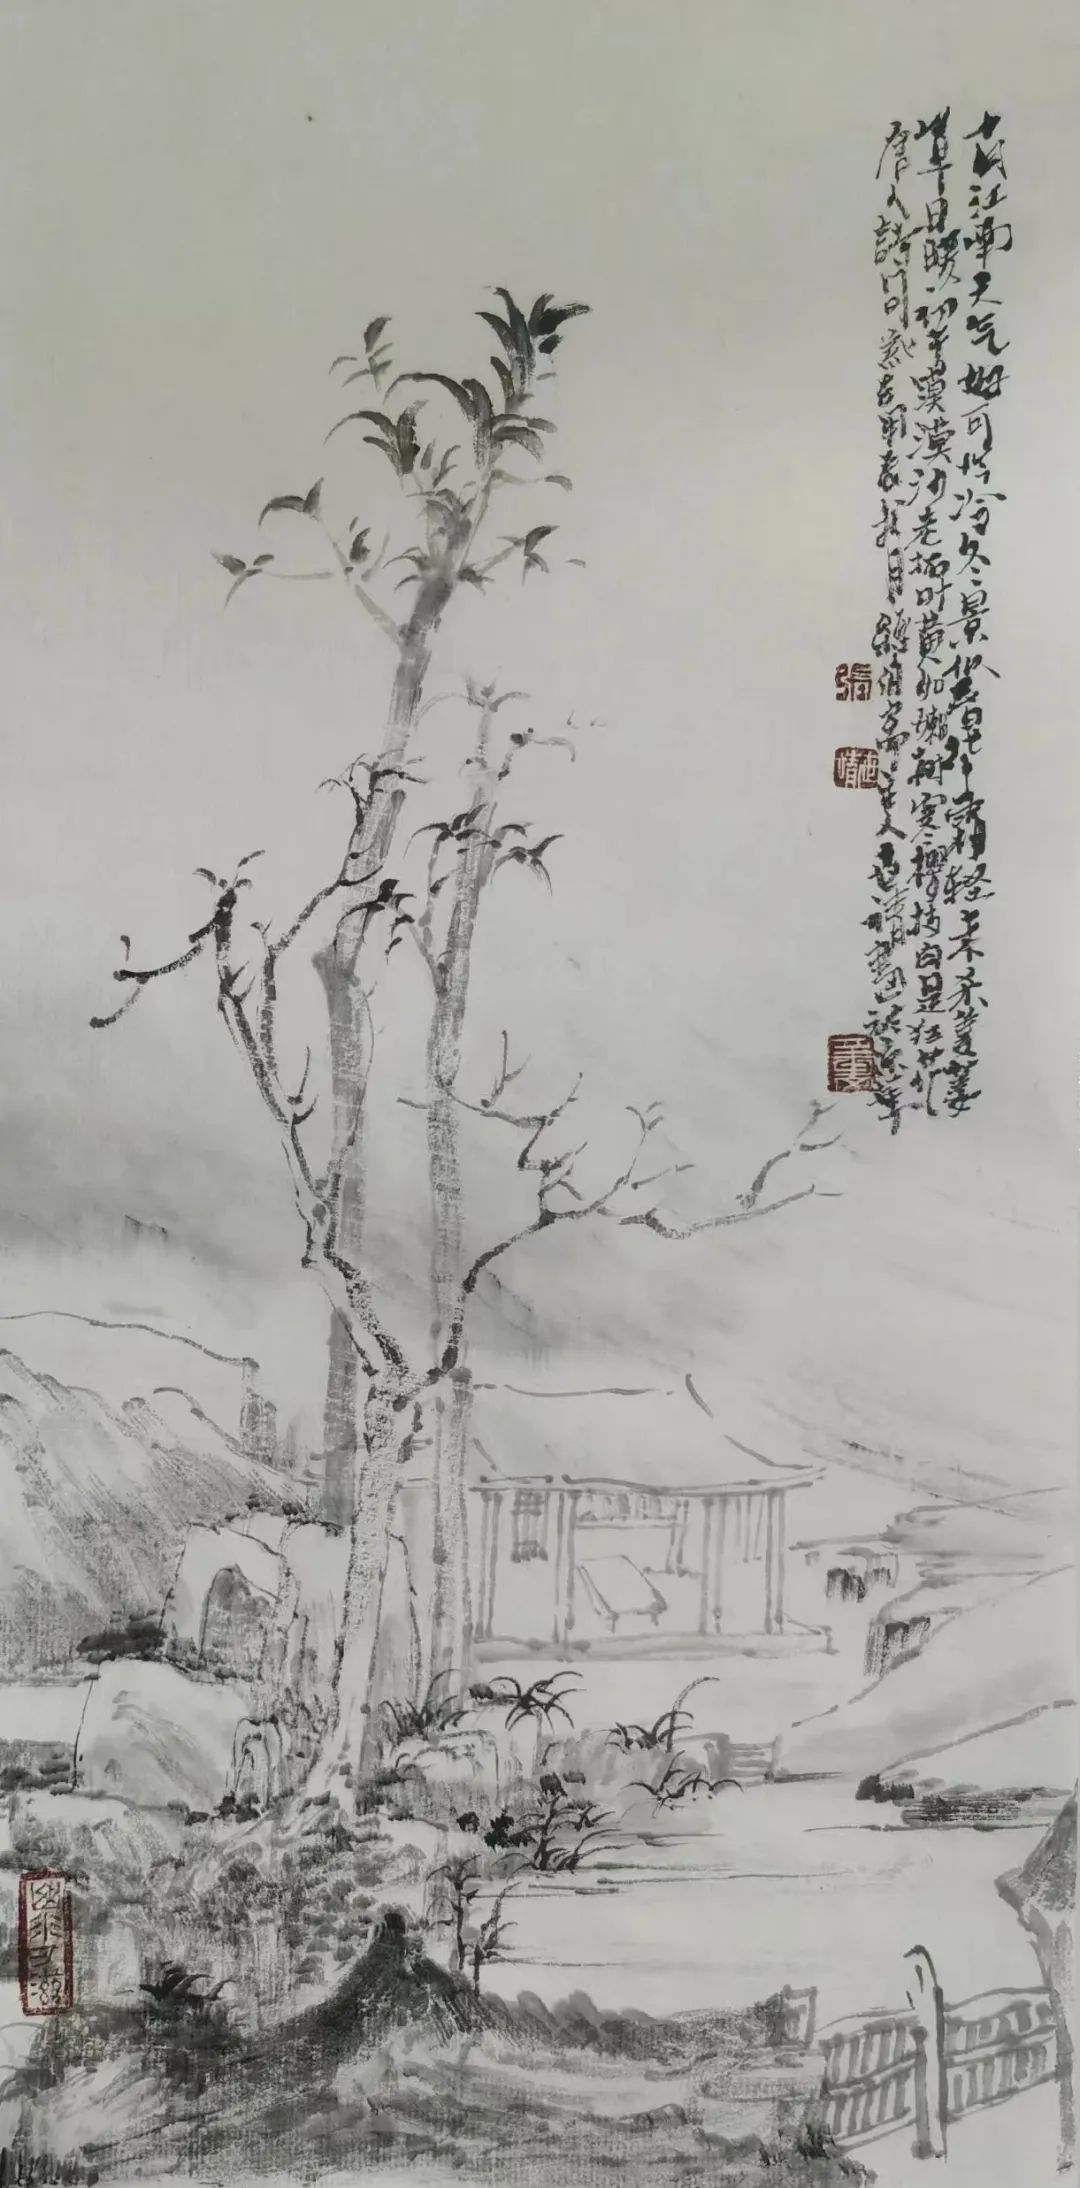 十月江南天气好可怜冬景似春华霜轻未杀萋萋
草日暖初干漠漠沙老柘叶黄如嫩树寒樱枝白是狂花
唐人詩句 月 斋主人 畫於京華
張